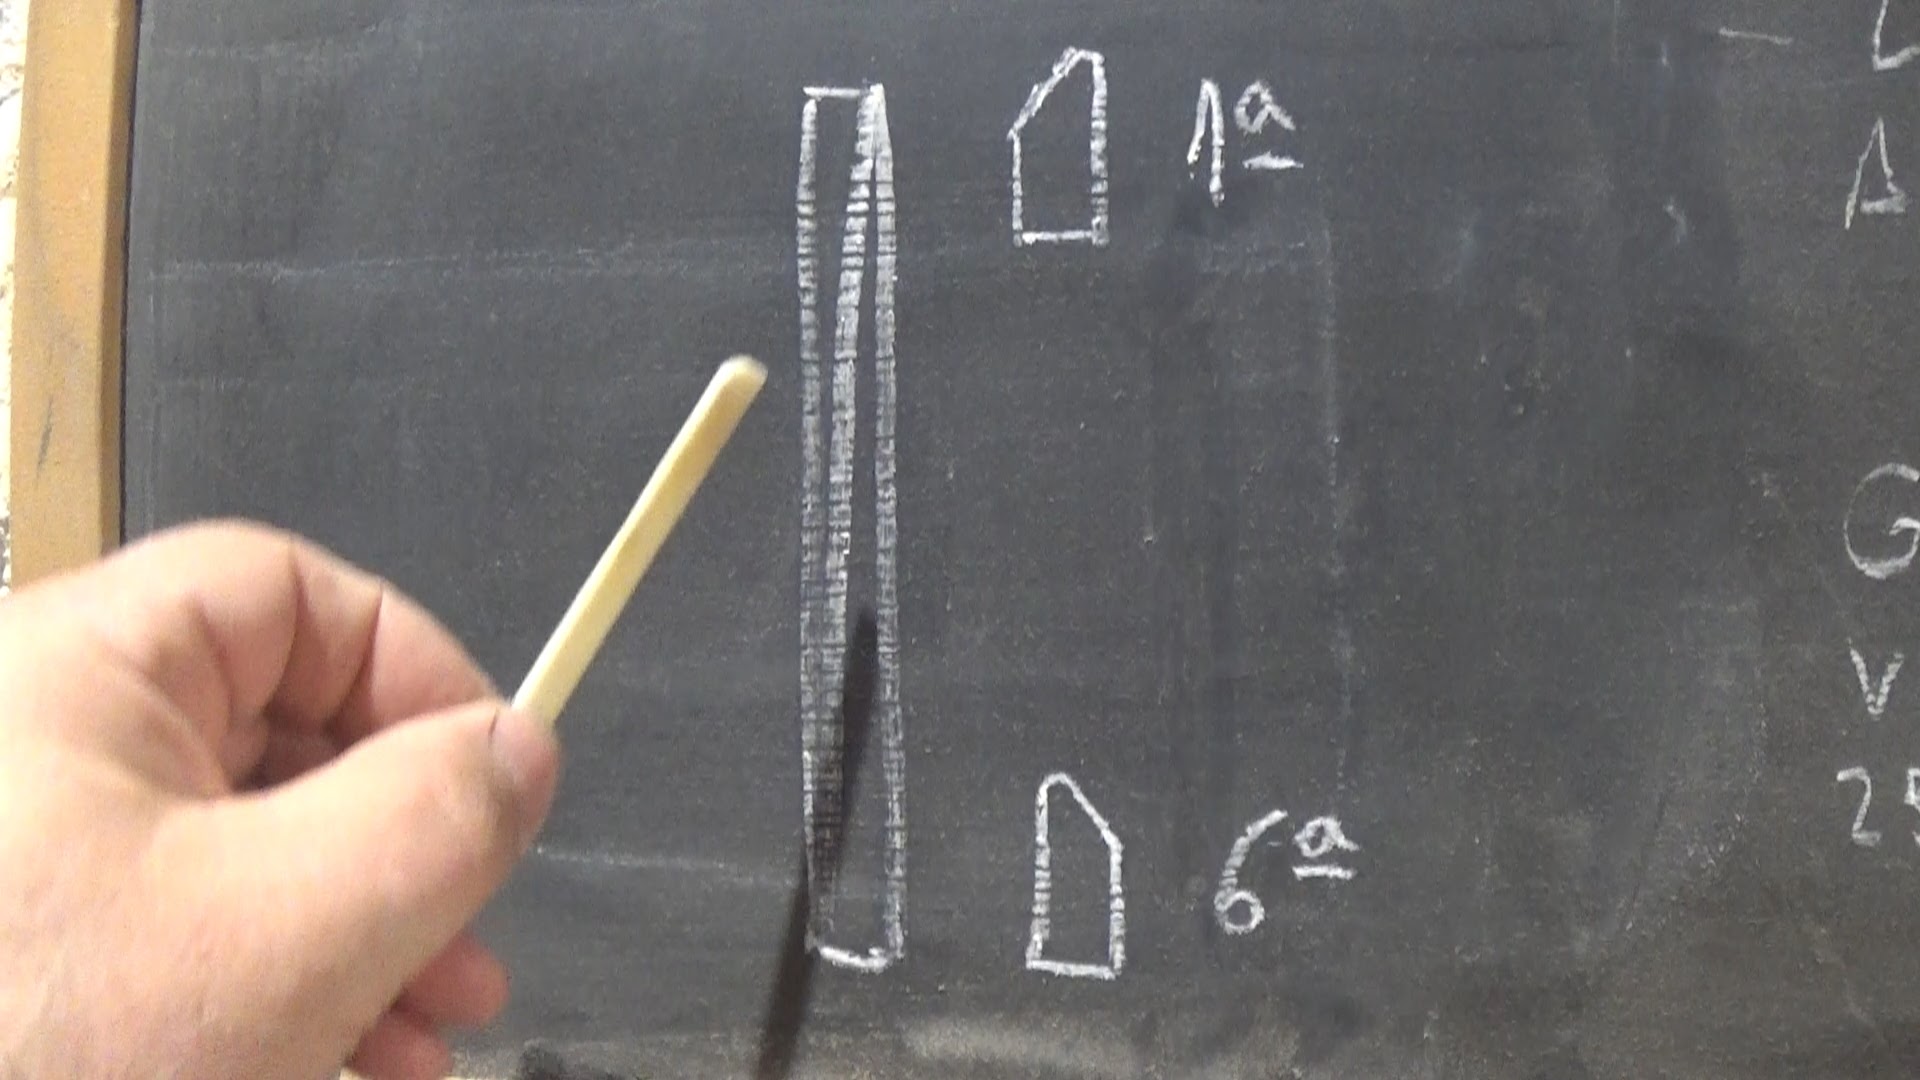 1ª
6ª
G
V
25